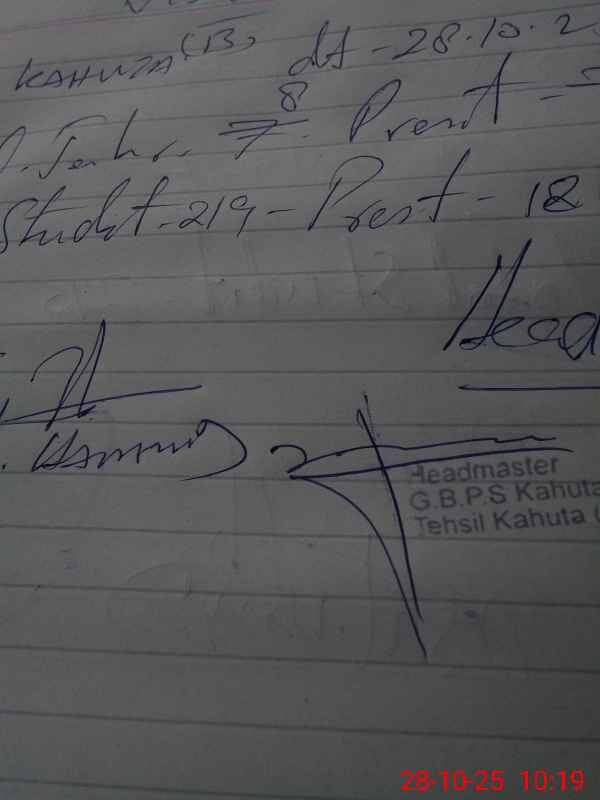 KAHUTA (B) dt - 28.10.2
8
7. Present =
Student - 219 - Present - 18
Head
Headmaster
G.B.P.S Kahuta
Tehsil Kahuta (
28-10-25 10:19